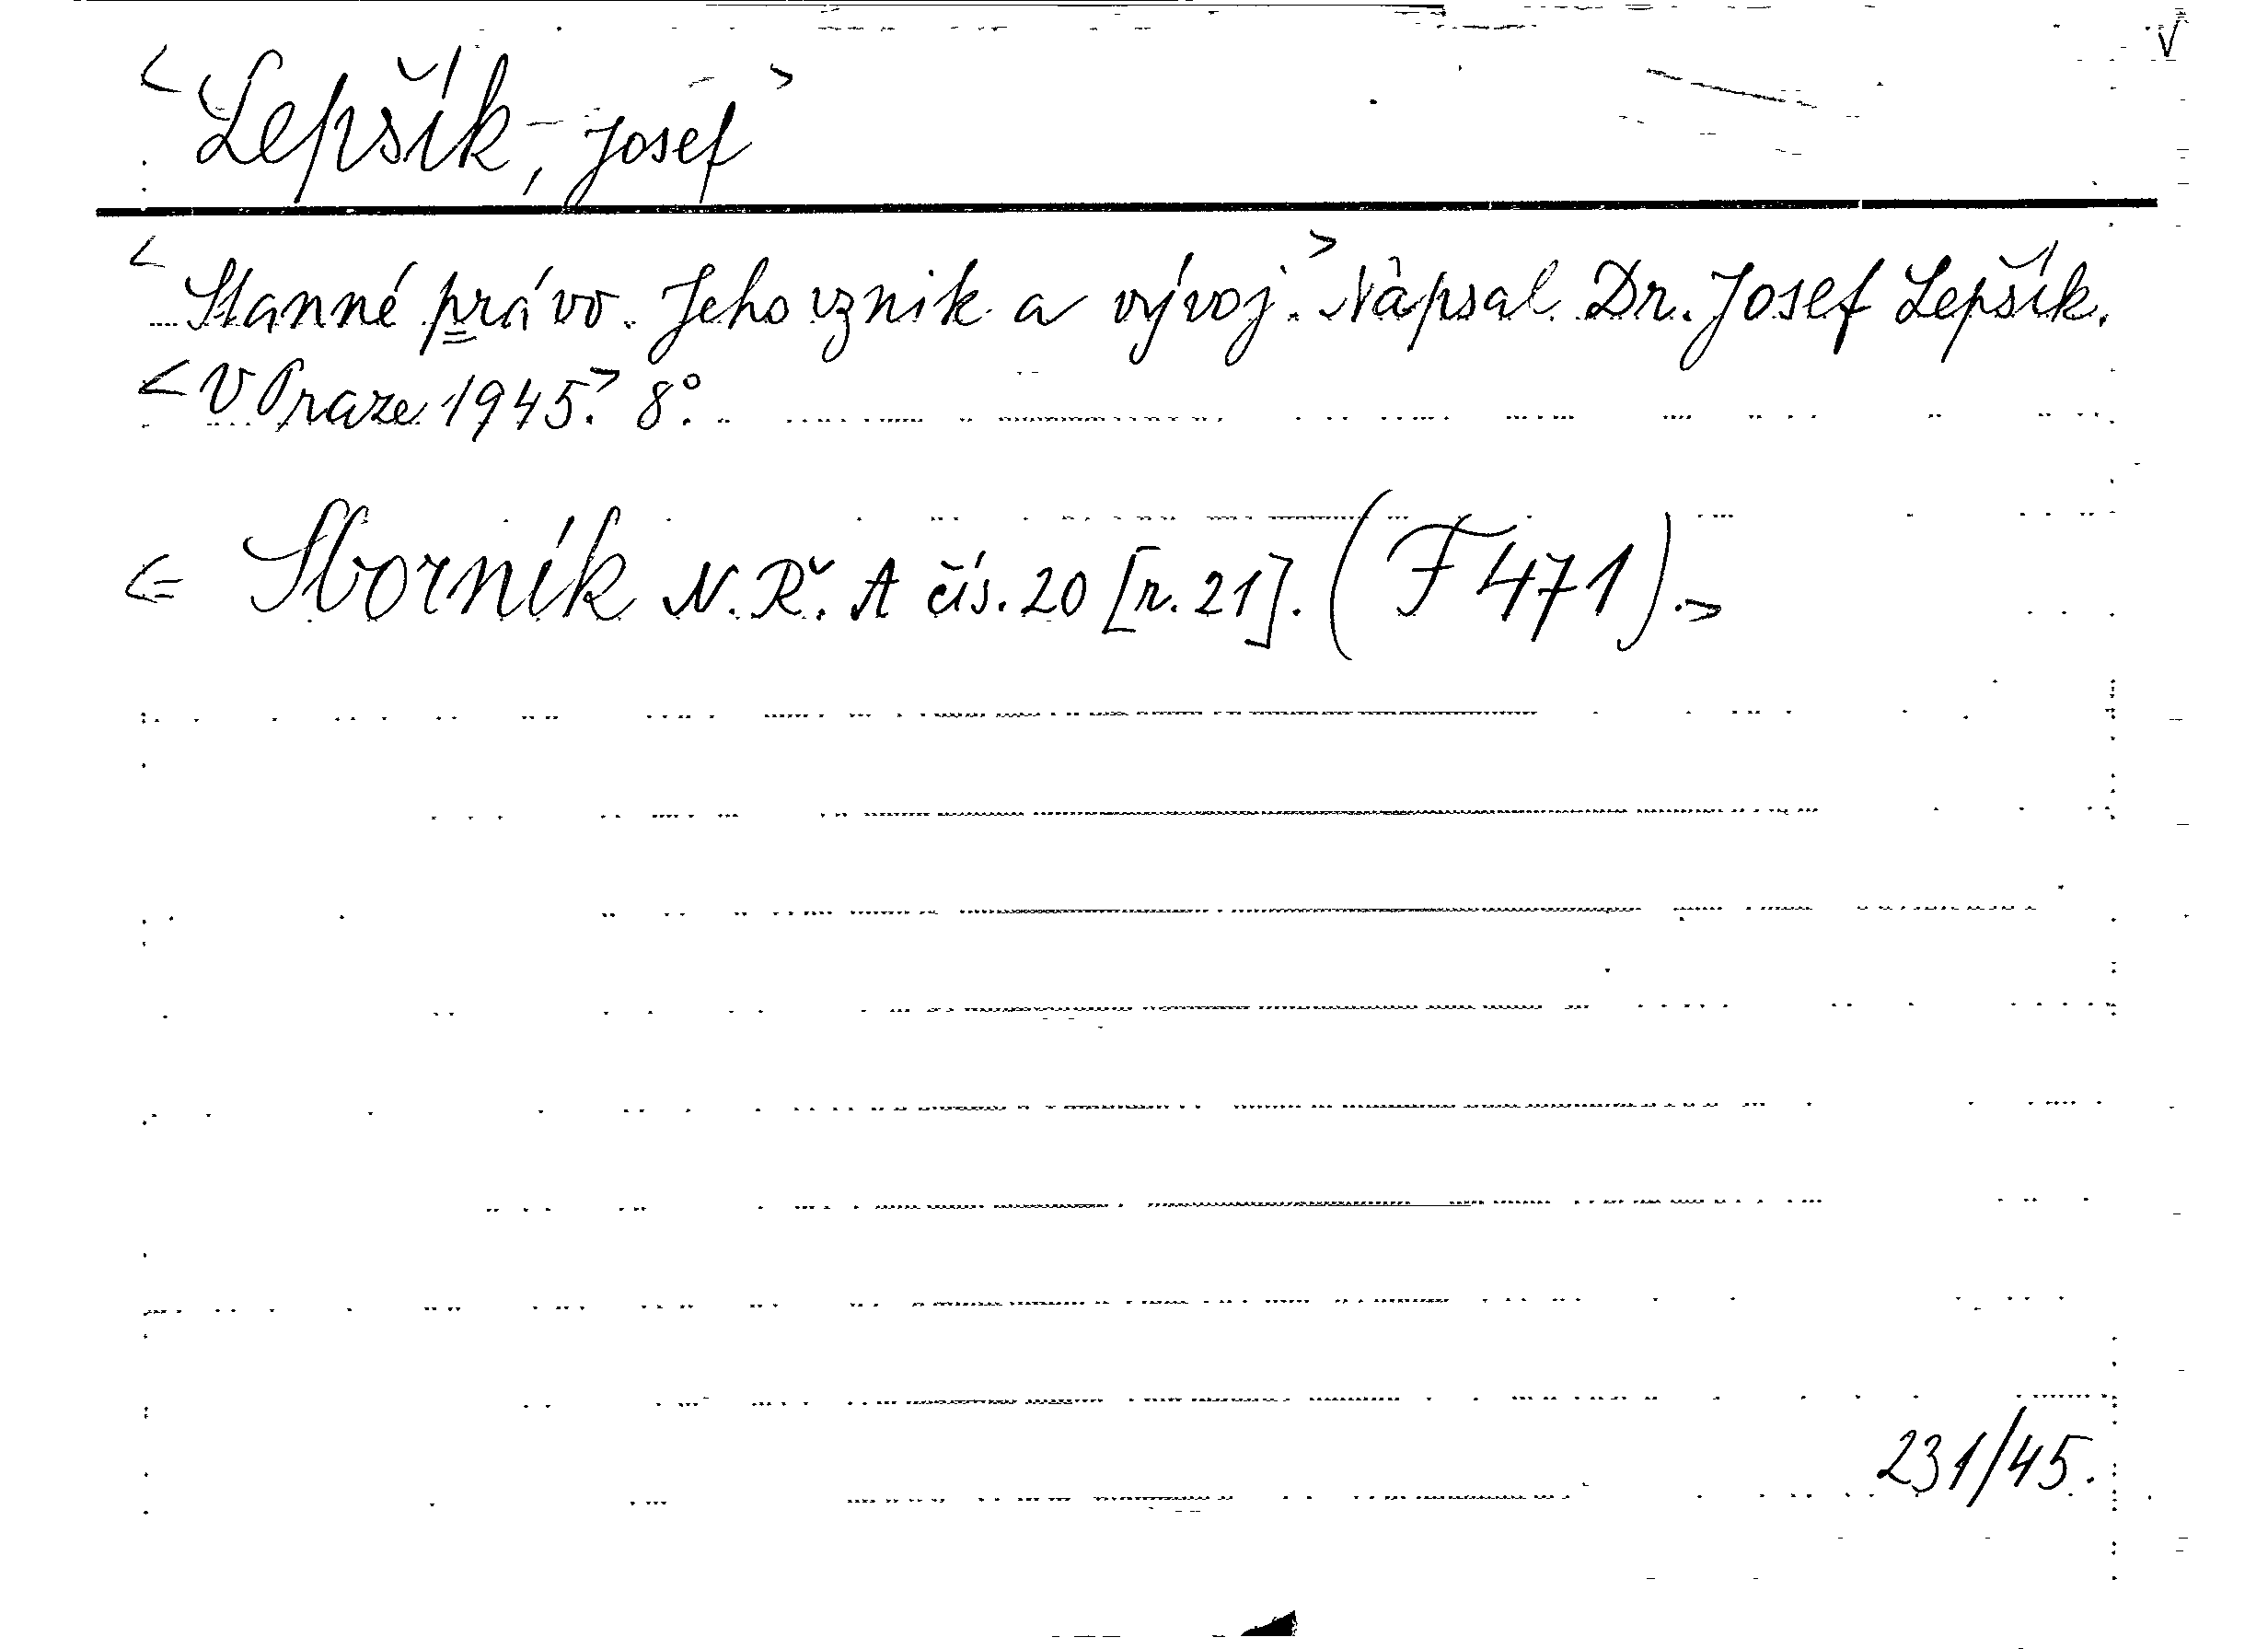 √
<Lepšík, Josef>
<Stanné právo. Jeho vznik a vývoj.> Napsal Dr. Josef Lepšík.
<V Praze 1945.> 8°.
<= Sborník N. Ř. A čís. 20 [r. 21]. (F 471).>
231/45.